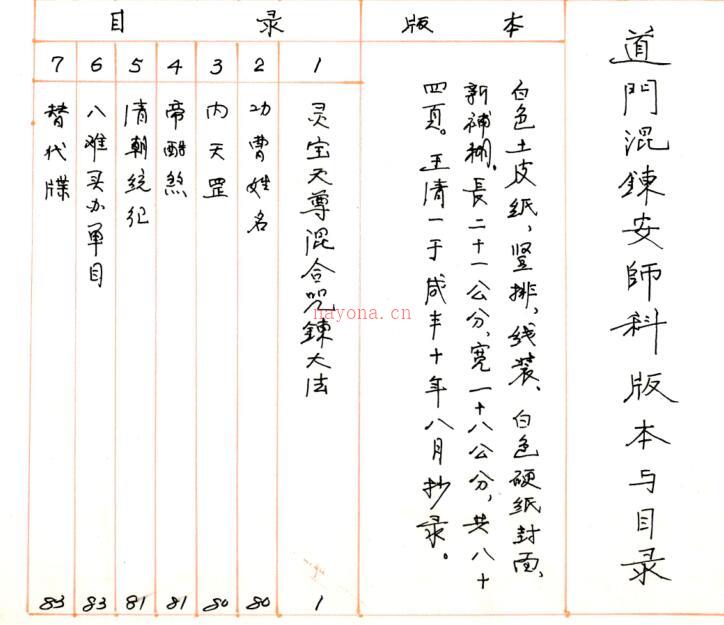 道門混鍊安師科版本与目录
版本
白色土皮纸，竖排，线装、白色硬纸封面，
新補糊。長二十一公分，宽一十八公分，共八十
四頁。王清一于咸丰十年八月抄录。
目录
1 灵宝天尊混合咒鍊大法 1
2 功曹姓名 80
3 内天罡 80
4 帝酷煞 81
5 清朝统纪 81
6 八难买办单目 83
7 替代牒 83
nayona.cn